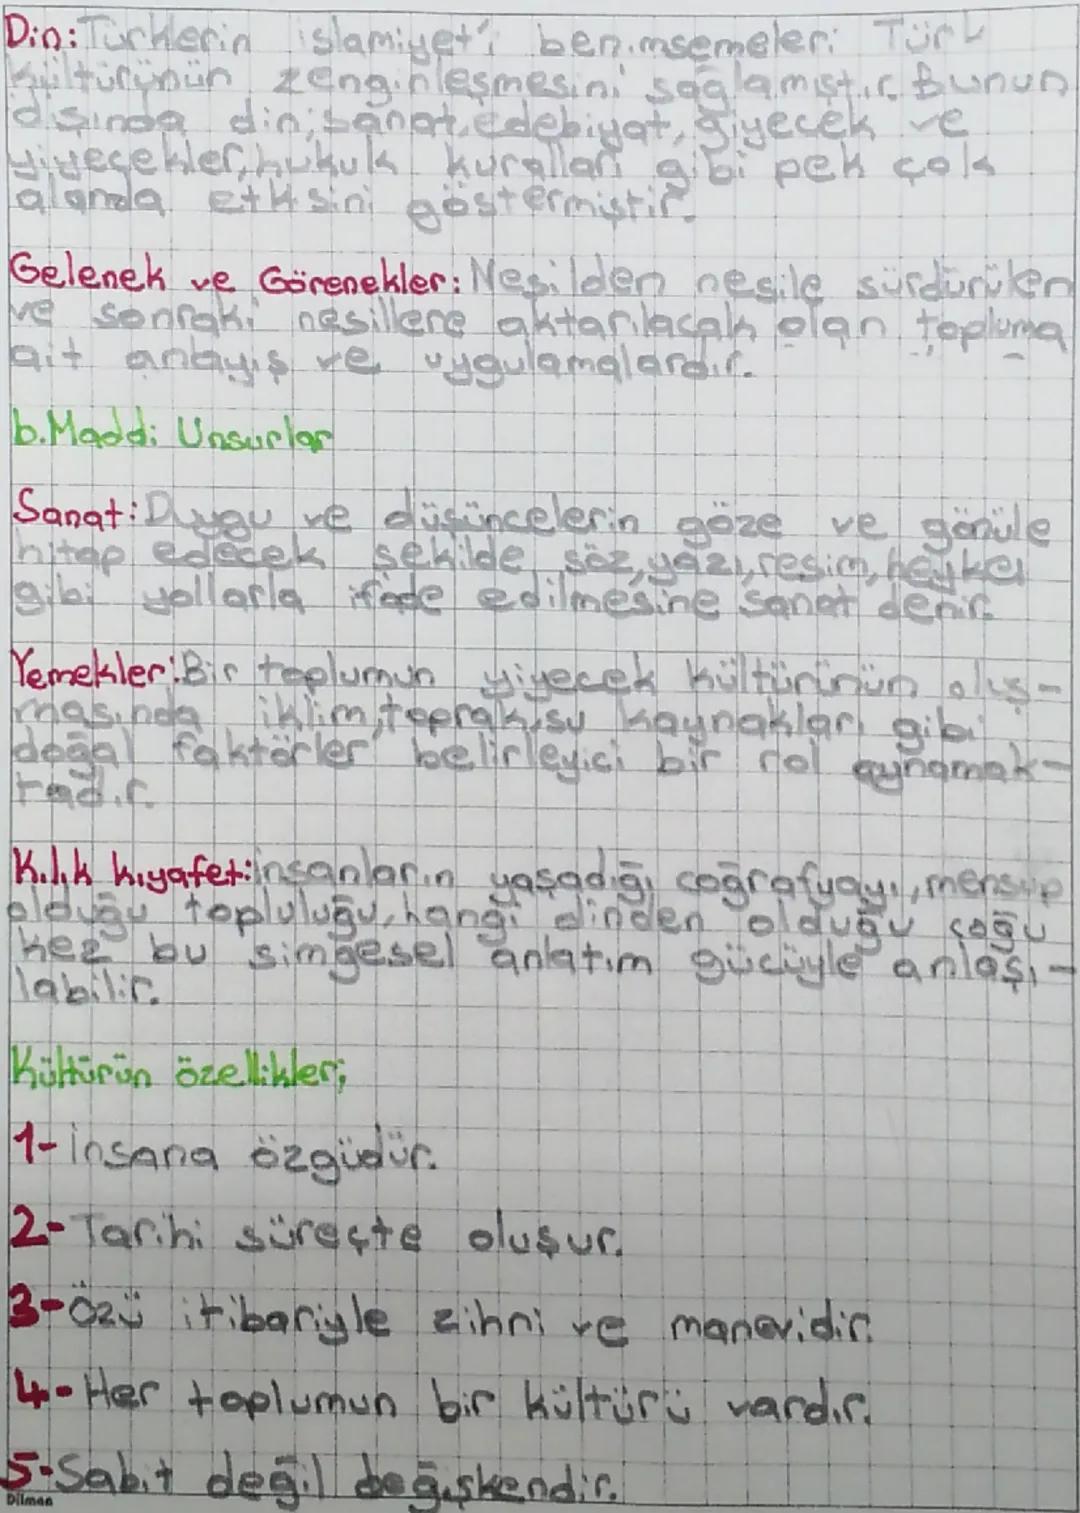 Din: Türklerin islamiyet'i benimsemeleri Türk
kültürünün zenginleşmesini sağlamıştır. Bunun
dışında din; sanat, edebiyat, giyecek ve
yiyecekler, hukuk kuralları gibi pek çok
alanda etkisini göstermiştir.
Gelenek ve Görenekler: Nesilden nesile sürdürülen
ve sonraki nesillere aktarılacak olan topluma
ait anlayış ve uygulamalardır.
b. Maddi Unsurlar
Sanat: Duygu ve düşüncelerin göze ve gönüle
hitap edecek şekilde söz, yazı, resim, heykel
gibi yollarla ifade edilmesine sanat denir.
Yemekler: Bir toplumun yiyecek kültürünün oluş-
masında iklim, toprak, su kaynakları gibi
doğal faktörler belirleyici bir rol oynamak-
tadır.
Kılık kıyafet: insanların yaşadığı coğrafyayı, mensup
olduğu topluluğu, hangi dinden olduğu çoğu
kez bu simgesel anlatım gücüyle anlaşı-
labilir.
Kültürün özellikleri;
1- insana özgüdür.
2- Tarihi süreçte oluşur.
3- Özü itibariyle zihni ve manevidir.
4- Her toplumun bir kültürü vardır.
5- Sabit değil değişkendir.
Dilman